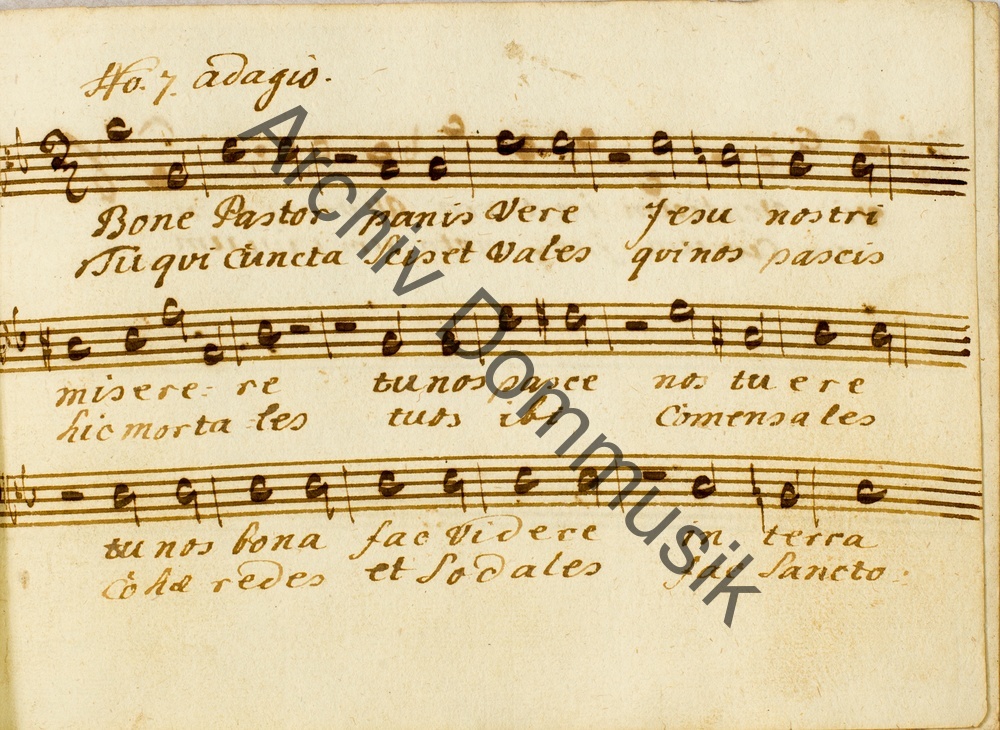 No. 7. adagio.
Bone Pastor panis Vere Jesu nostri
Tu qui Cuncta Scis et Vales qui nos pascis
misere- re tu nos pasce nos tuere
hic morta-les tuos ibi Comensales
tu nos bona fac Videre in terra
Cohæredes et Sodales fac Sancto:
Archiv Dommusik